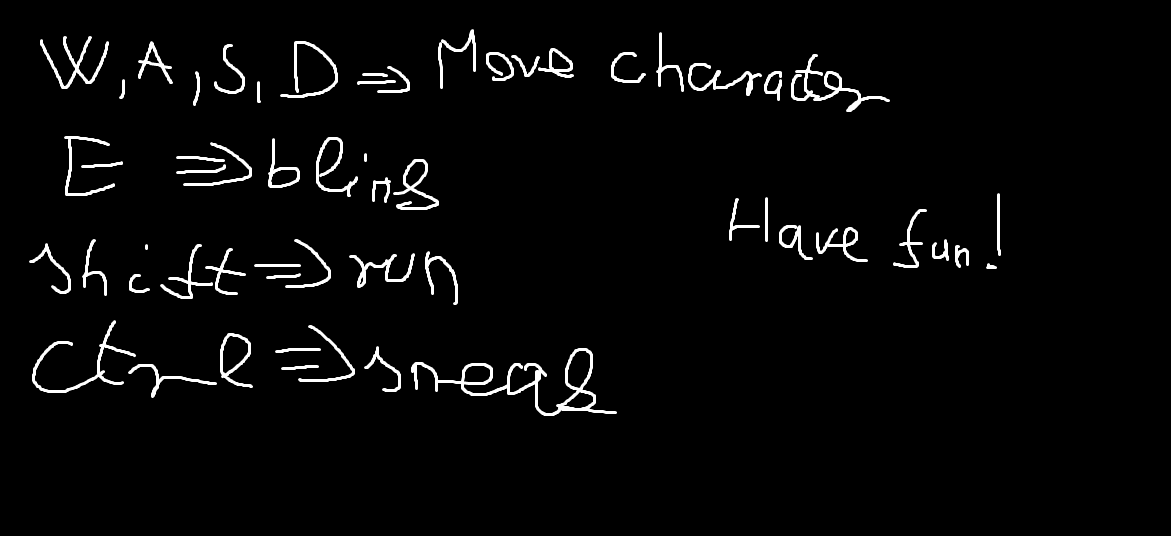 W, A, S, D => Move character
E => blink
shift => run
Ctrl => sneak
Have fun!